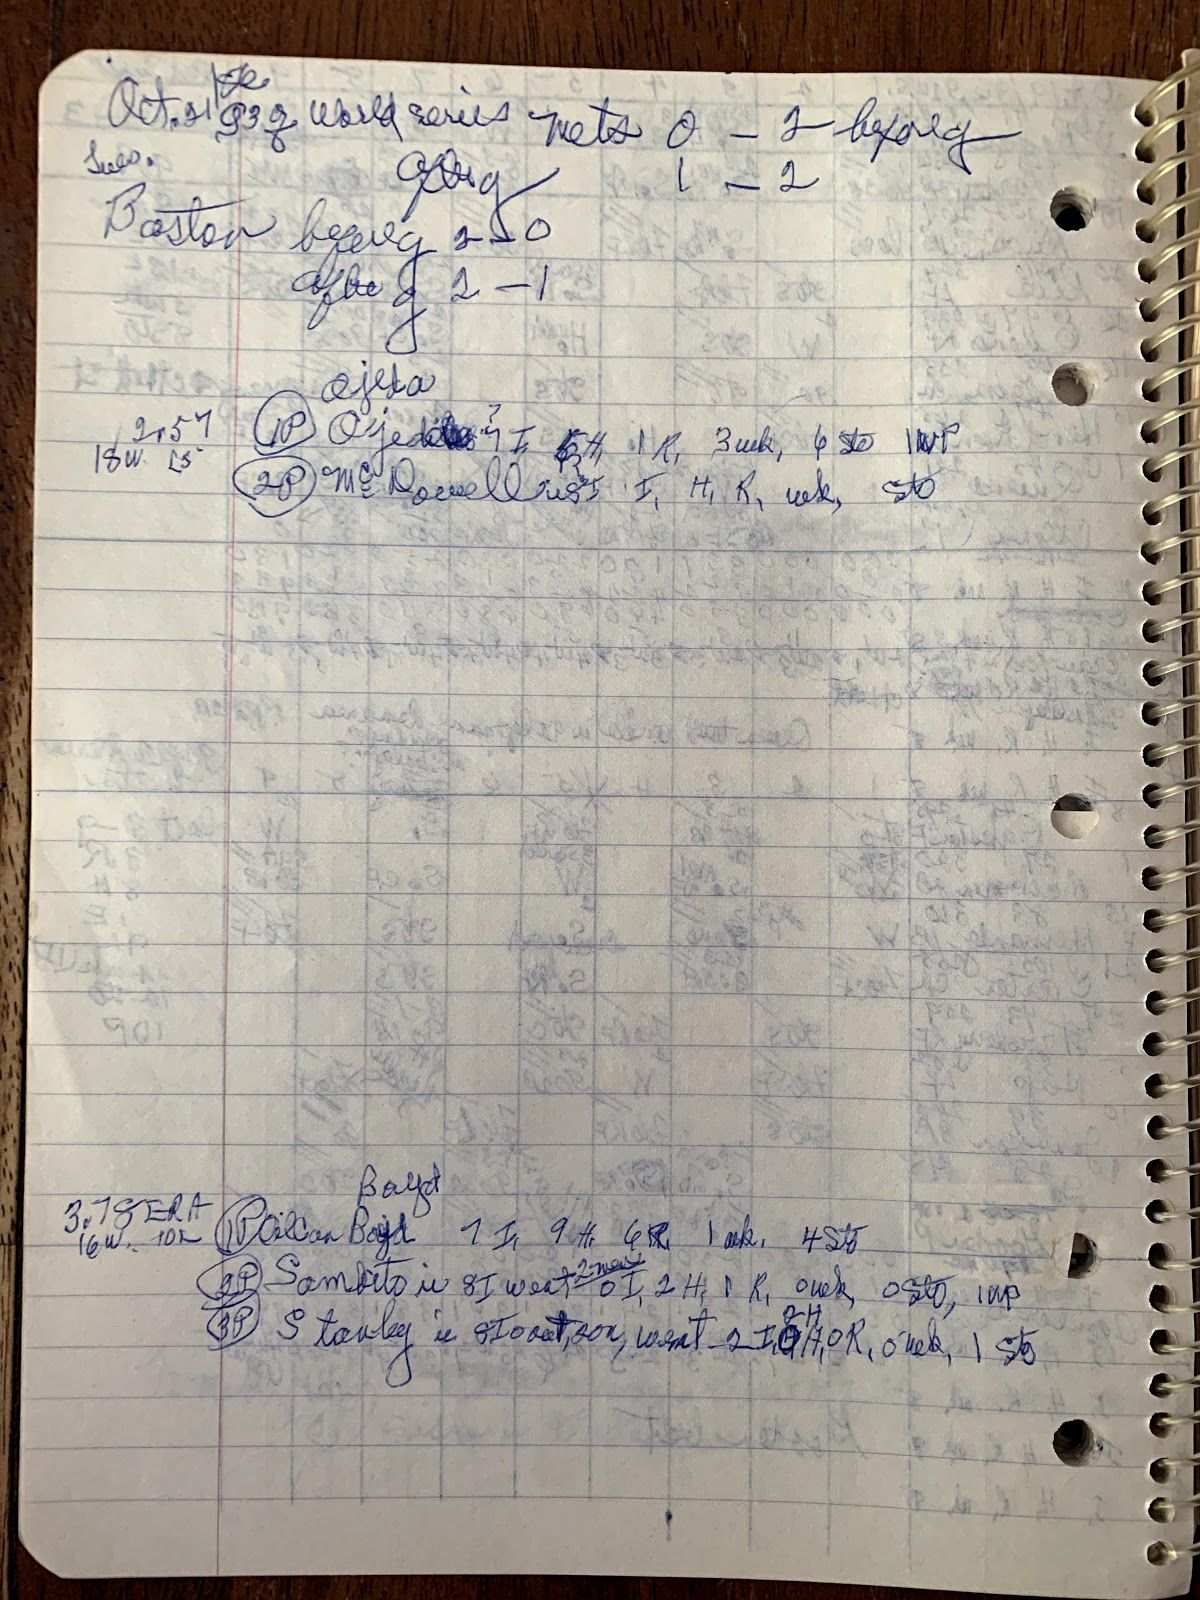 Oct. 21 83 g World series Mets 0 – 2 before g
Tues. after g 1 – 2
Boston before g 2 – 0
after g 2 – 1
Ojeda
2.57 1P Ojeda 7 I, 5 H, 1 R, 3 wk, 6 sto 1 WP
18 W. L5 2P McDowell in 8 I I, H, R, wk, sto
Boyd
3.78 ERA 1P Oil Can Boyd 7 I, 9 H, 6 R, 1 wk. 4 Sto
16 W. 10L
2P Sambito in 8 I went 0 I, 2 H, 1 R, 0 wk, 0 Sto, 1 WP
2 men
3P Stanley in 8 I 0 out, 2 on, went 2 I, H, 0 R, 0 wk, 1 Sto
2H